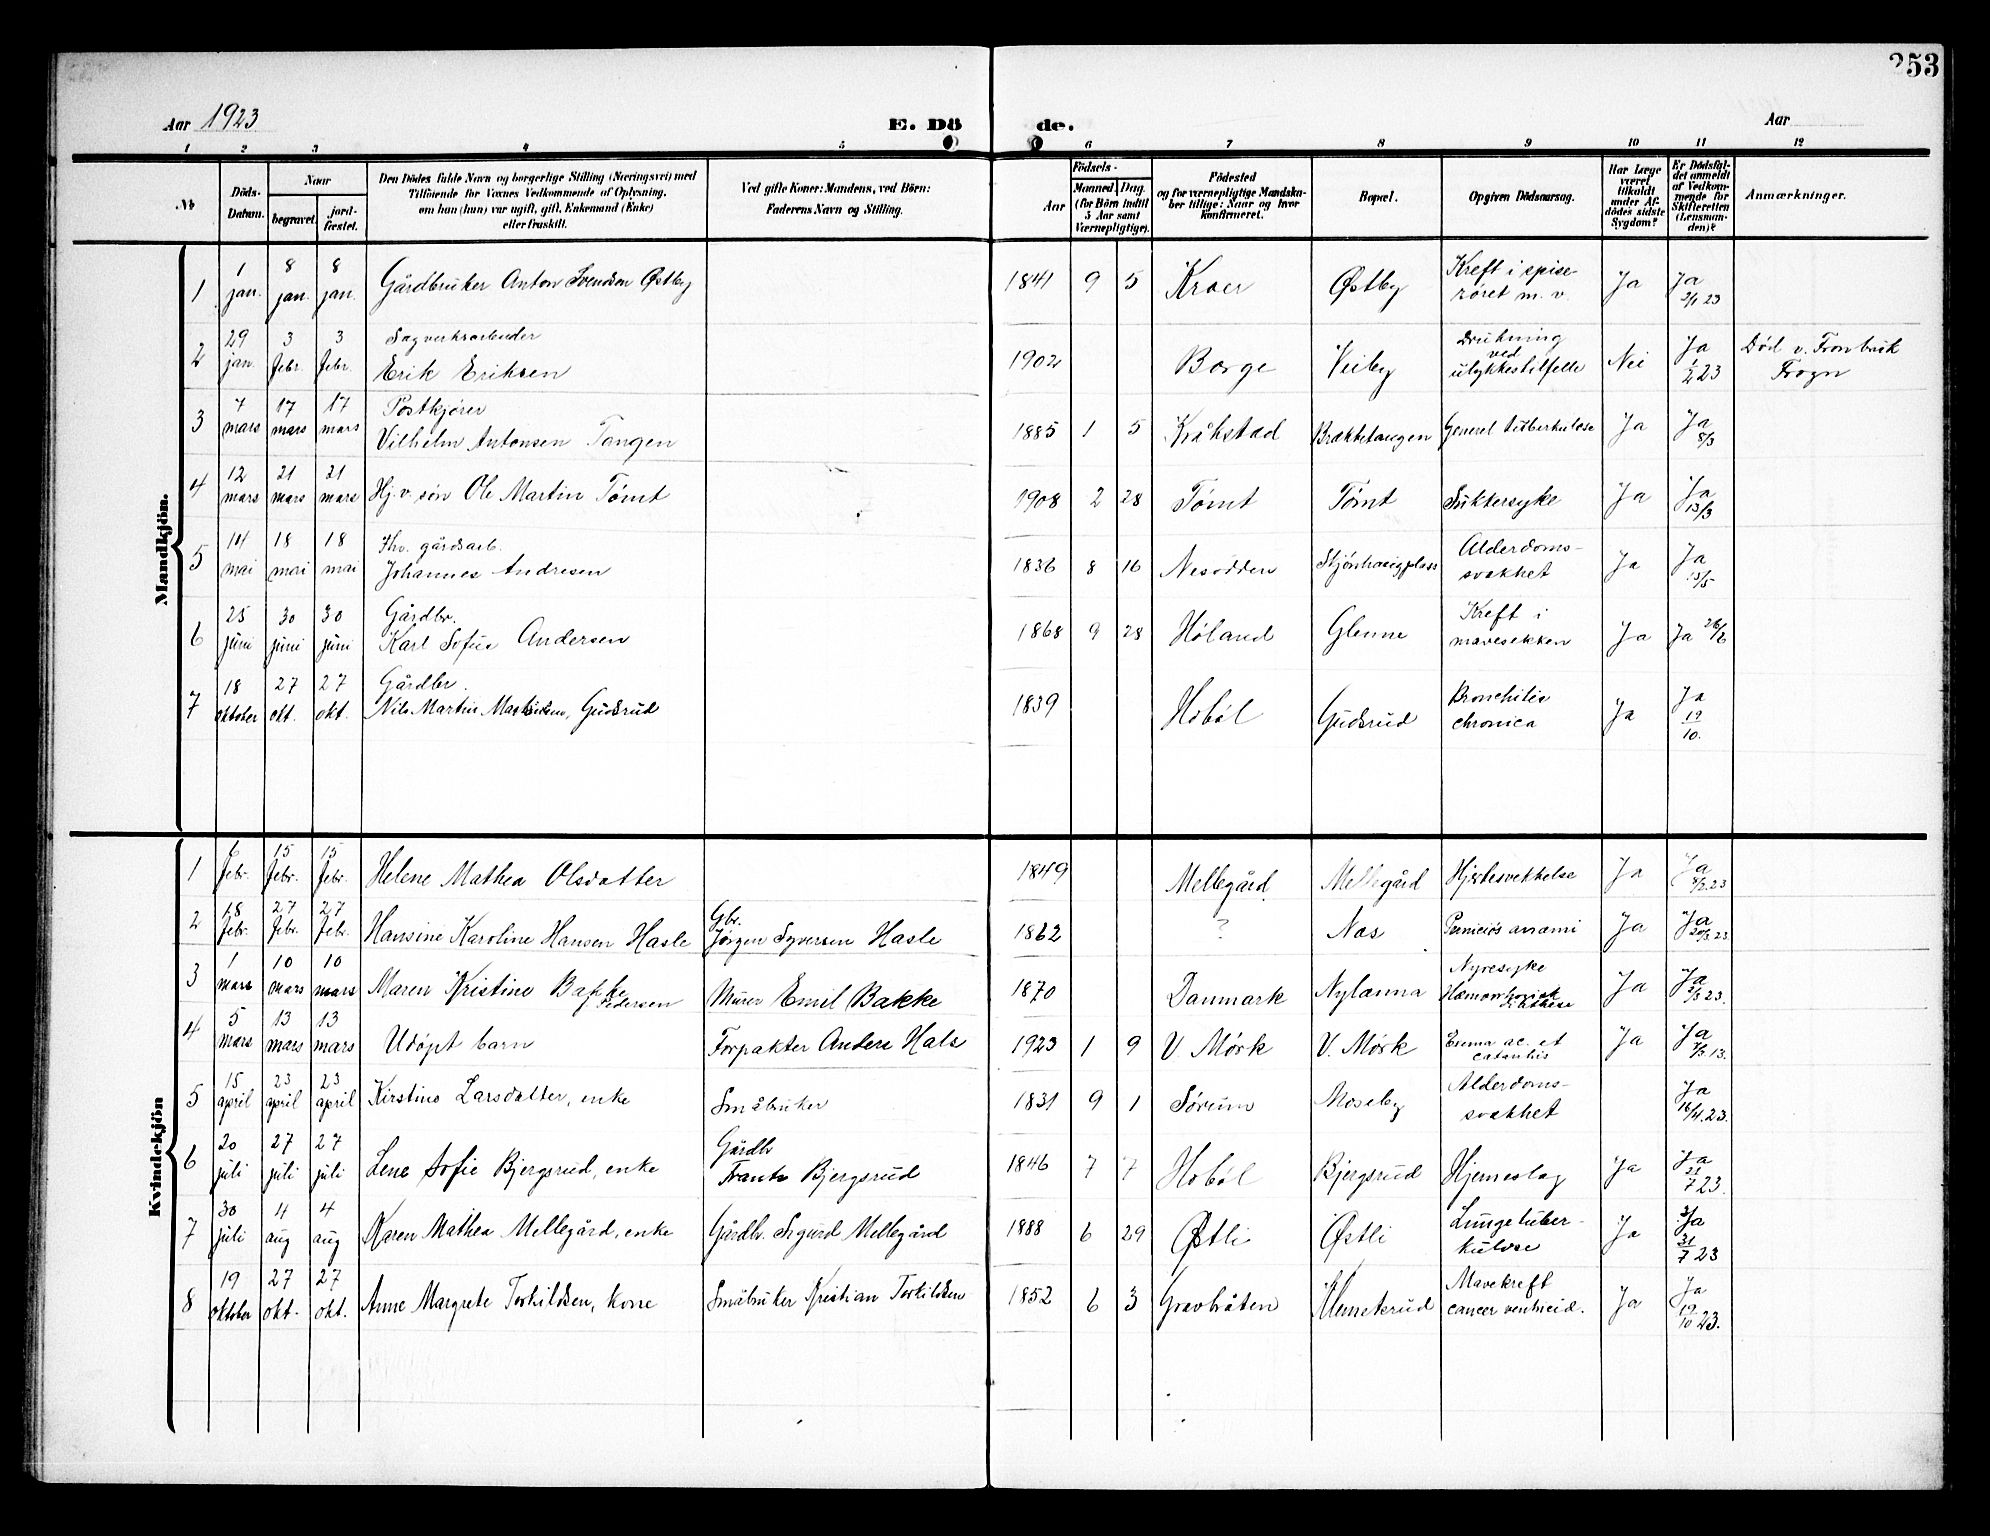 253
Aar 1923
E. Dö de.
Aar
1 2 3 4 5 6 7 8 9 10 11 12
№
Döds-Datum.
Naar
begravet.
jord-fæstet.
Den Dödes fulde Navn og borgerlige Stilling (Næringsvei) med
Tilföiende for Voxnes Vedkommende af Oplysning,
om han (hun) var ugift, gift, Enkemand (Enke)
eller fraskilt.
Ved gifte Koner: Mandens, ved Börn:
Faderens Navn og Stilling.
Födsels-
Aar
Maaned. Dag.
(for Börn indtil
5 Aar samt
Værnepligtige).
Födested
og for værnepligtige Mandska-
ber tillige: Naar og hvor
konfirmeret.
Bopæl.
Opgiven Dödsaarsag.
Har Læge
været
tilkaldt
under Af-
dödes sidste
Sygdom?
Er Dödsfal-
det anmeldt
af Vedkom-
mende for
Skifteretten
(Lensman-
den)?
Anmærkninger.
Mandkjön.
1 1 jan. 8 jan. 8 jan. Gårdbruker Anton Svendsen Østby 1841 9 5 Kroer Østby Kreft i spise-
røret m. v. Ja Ja 2/1 23
2 29 jan. 3 Febr. 3 Febr. Sagverksarbeider
Erik Eriksen 1902 Borge Veiby Drukning
ved
ulykkestilfelle Nei Ja 1/2 23 Død v. Fronbrik
Frogn
3 7 mars 17 mars 17 mars Postkjører
Vilhelm Antonsen Tangen 1885 1 5 Kråkstad Brækketangen Generel tuberkulose Ja Ja 8/3
4 12 mars 21 mars 21 mars Hj. v. søn Ole Martin Tømt 1908 2 28 Tømt Tømt Sukkersyke Ja Ja 13/3
5 14 mai 18 mai 18 mai Fhv. gårdsarb.
Johannes Andresen 1836 8 16 Nesodden Alderdoms-
svakhet Ja Ja 15/5
6 25 juni 30 juni 30 juni Gårdbr.
Karl Sofus Andersen 1868 9 28 Høland Glenne Kreft i
mavesekken Ja Ja 26/6
7 18 oktober 27 okt. 27 okt. Gårdbr.
Nils Martin Gudsrud 1839 Hobøl Gudsrud Bronchitis
chronica Ja Ja 19/10.
Kvindekjön
1 6 Febr. 15 Febr. 15 Febr. Helene Mathea Olsdatter 1849 Mellegård Mellegård Hjertesvekkelse Ja Ja 8/2.23
2 18 Febr. 27 Febr. 27 Febr. Hansine Karoline Hansen Hasle Gbr.
Jørgen Syversen Hasle 1862 ? Nas Perniciøs anæmi Ja Ja 23.
3 1 mars 10 mars 10 mars Maren Kristine Bakke
Pedersen Murer Emil Bakke 1870 Danmark Nylænna Nyresyke
Hæmorrhagisk
diathese Ja Ja 2/3 23.
4 5 mars 13 mars 13 mars Udøpt barn Forpakter Anders Hals 1923 1 9 V. Mørk V. Mørk ac. et Ja Ja 7/3.13.
5 15 april 23 april 23 april Kirstine Larsdatter, enke Småbruker 1831 9 1 Sørum Moseby Alderdoms-
svakhet Ja 16/4.23.
6 20 juli 27 juli 27 juli Lene Sofie Bjergsrud, enke Gårdb
Frants Bjergsrud 1846 7 7 Hobøl Bjergsrud Hjerneslag Ja Ja 21/7 23.
7 30 juli 4 aug 4 aug Karen Mathea Mellegård, enke Gårdb. Sigurd Mellegård 1888 6 29 Østli Østli Lungetuber-
kulose Ja Ja 31/7 23
8 19 oktober 27 okt. 27 okt. Anne Margrete Torkildsen, kone Småbruker Kristian Torkildsen 1852 6 3 Gravbråten Klemetsrud Mavekreft
cancer ventricid. Ja Ja 19/10 23.